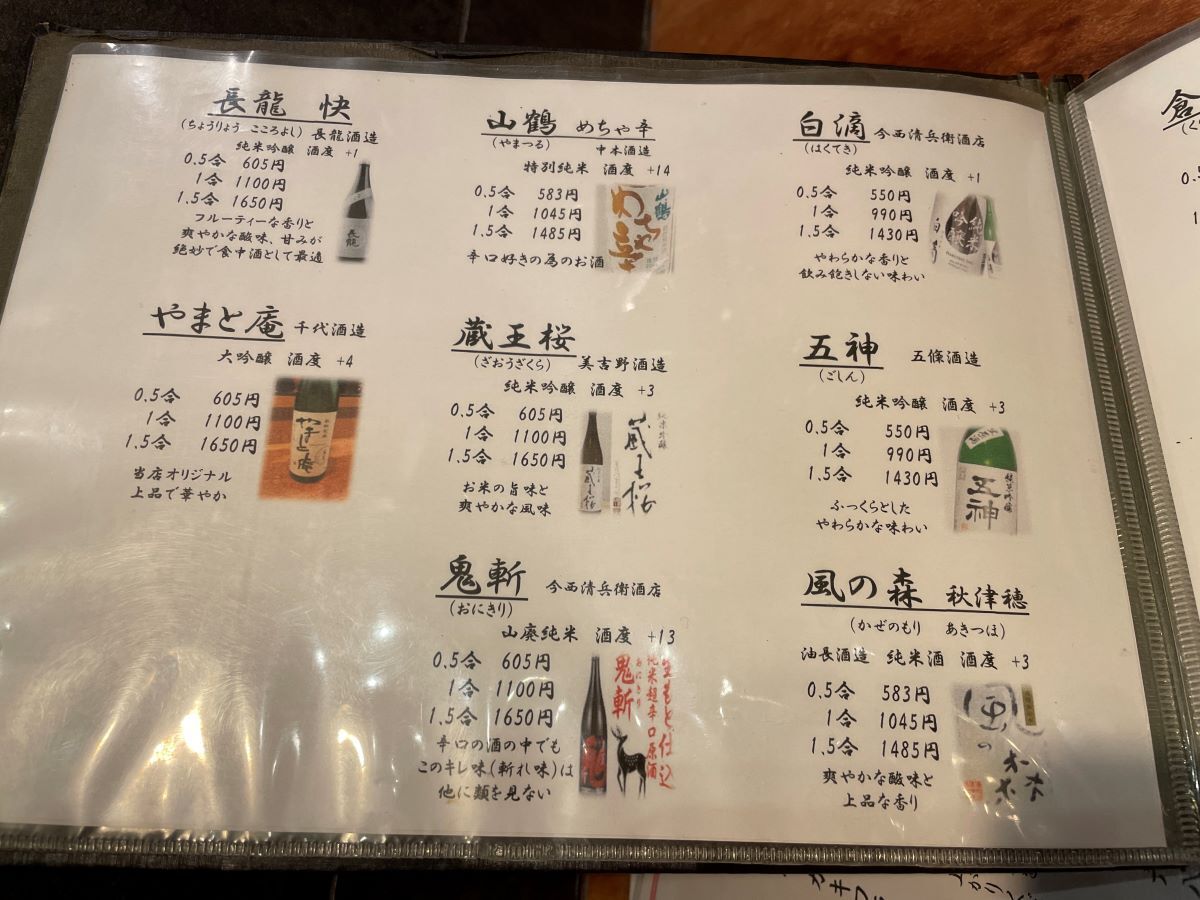 長龍 快
(ちょうりょう こころよし) 長龍酒造
純米吟醸 酒度 +1
0.5合 605円
1合 1100円
1.5合 1650円
フルーティーな香りと
爽やかな酸味、甘みが
絶妙で食中酒として最適
長龍
山鶴 めちゃ辛
(やまつる) 中本酒造
特別純米 酒度 +14
0.5合 583円
1合 1045円
1.5合 1485円
辛口好きの為のお酒
山鶴
めちゃ辛
白滴 今西清兵衛酒店
(はくてき)
純米吟醸 酒度 +1
0.5合 550円
1合 990円
1.5合 1430円
やわらかな香りと
飲み飽きしない味わい
純米
吟醸
やまと庵 千代酒造
大吟醸 酒度 +4
0.5合 605円
1合 1100円
1.5合 1650円
当店オリジナル
上品で華やか
やまと庵
蔵王桜
(ざおうざくら) 美吉野酒造
純米吟醸 酒度 +3
0.5合 605円
1合 1100円
1.5合 1650円
お米の旨味と
爽やかな風味
蔵王桜
純米吟醸
蔵王桜
五神 五條酒造
(ごしん)
純米吟醸 酒度 +3
0.5合 550円
1合 990円
1.5合 1430円
ふっくらとした
やわらかな味わい
純米吟醸
五神
鬼斬 今西清兵衛酒店
(おにきり)
山廃純米 酒度 +13
0.5合 605円
1合 1100円
1.5合 1650円
辛口の酒の中でも
このキレ味(斬れ味)は
他に類を見ない
生もと仕込
純米超辛口原酒
おにきり
鬼斬
風の森 秋津穂
(かぜのもり あきつほ)
油長酒造 純米酒 酒度 +3
0.5合 583円
1合 1045円
1.5合 1485円
爽やかな酸味と
上品な香り
風の森
倉
0.5